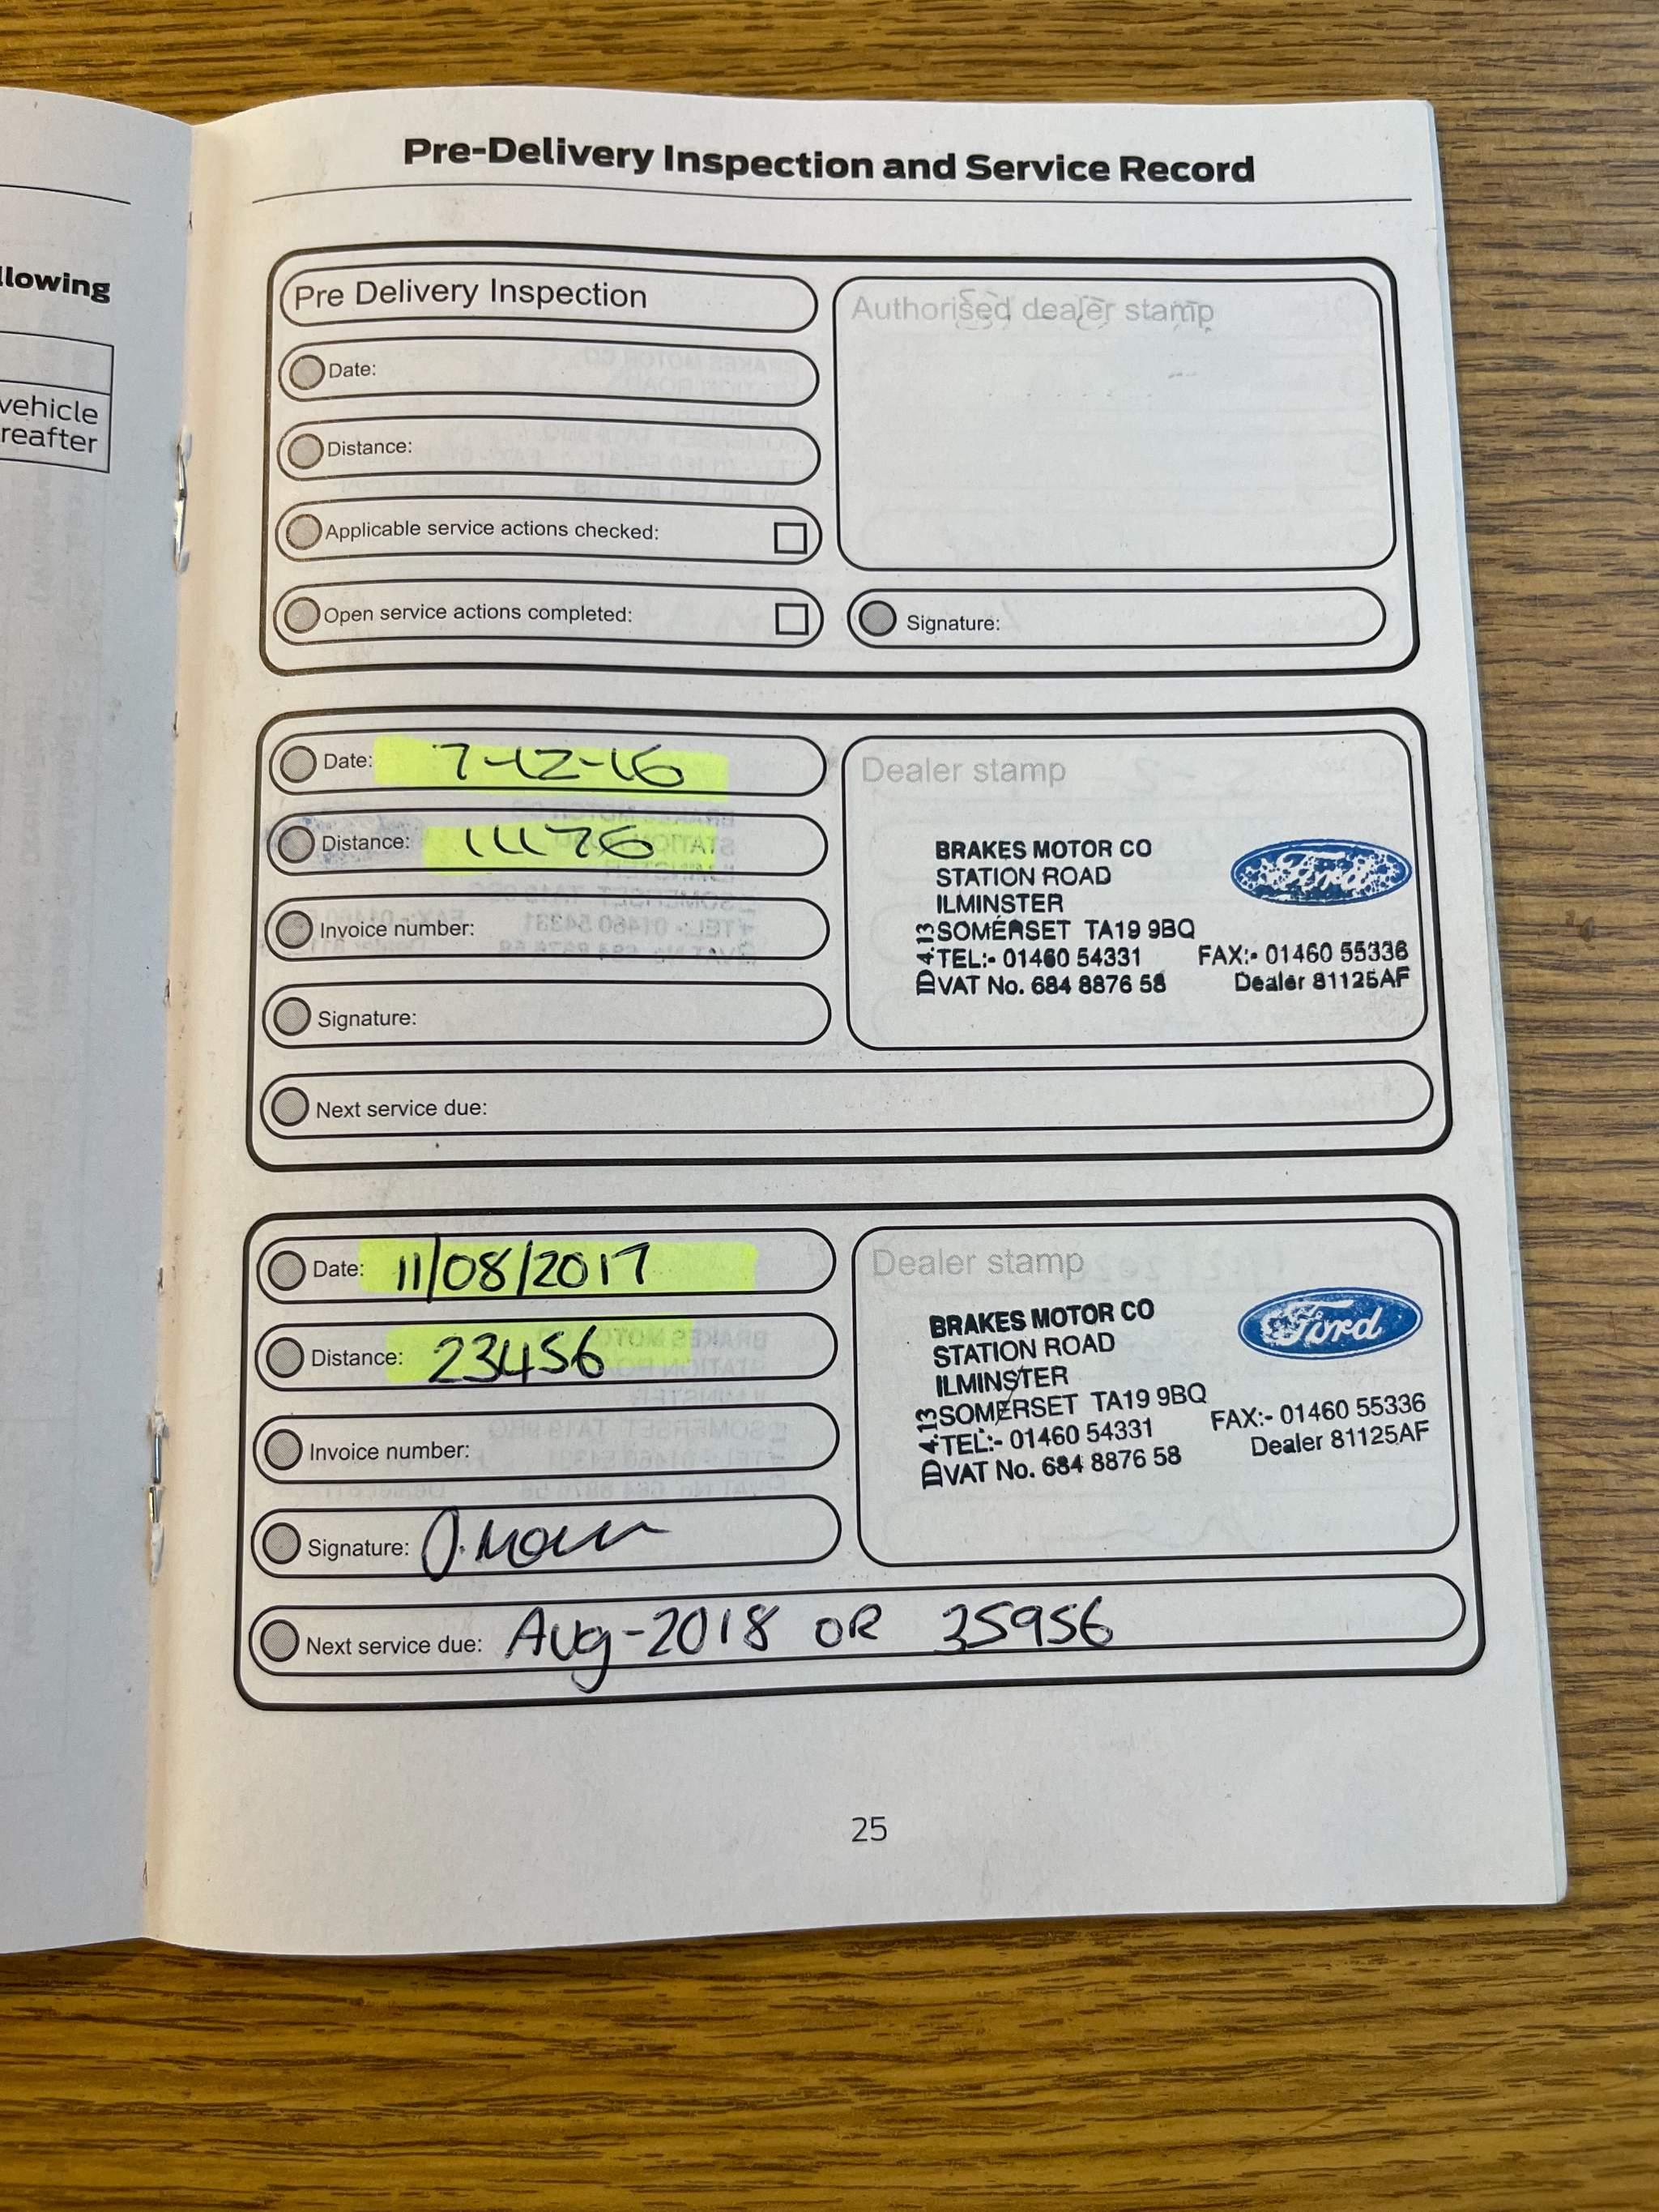 llowing
vehicle
reafter
Pre-Delivery Inspection and Service Record
Pre Delivery Inspection
Authorised dealer stamp
Date:
Distance:
Applicable service actions checked:
Open service actions completed:
Signature:
Date: 7-12-16
Distance: 11176
Invoice number:
Signature:
Dealer stamp
BRAKES MOTOR CO
STATION ROAD
ILMINSTER
SOMERSET TA19 9BQ
TEL:- 01460 54331 FAX:- 01460 55336
VAT No. 684 8876 58 Dealer 81125AF
ID 4.13
Ford
Next service due:
Date: 11/08/2017
Distance: 23456
Invoice number:
Signature:
Dealer stamp
BRAKES MOTOR CO
STATION ROAD
ILMINSTER
SOMERSET TA19 9BQ
TEL:- 01460 54331 FAX:- 01460 55336
VAT No. 684 8876 58 Dealer 81125AF
ID 4.13
Ford
Next service due: Aug-2018 OR 35956
25